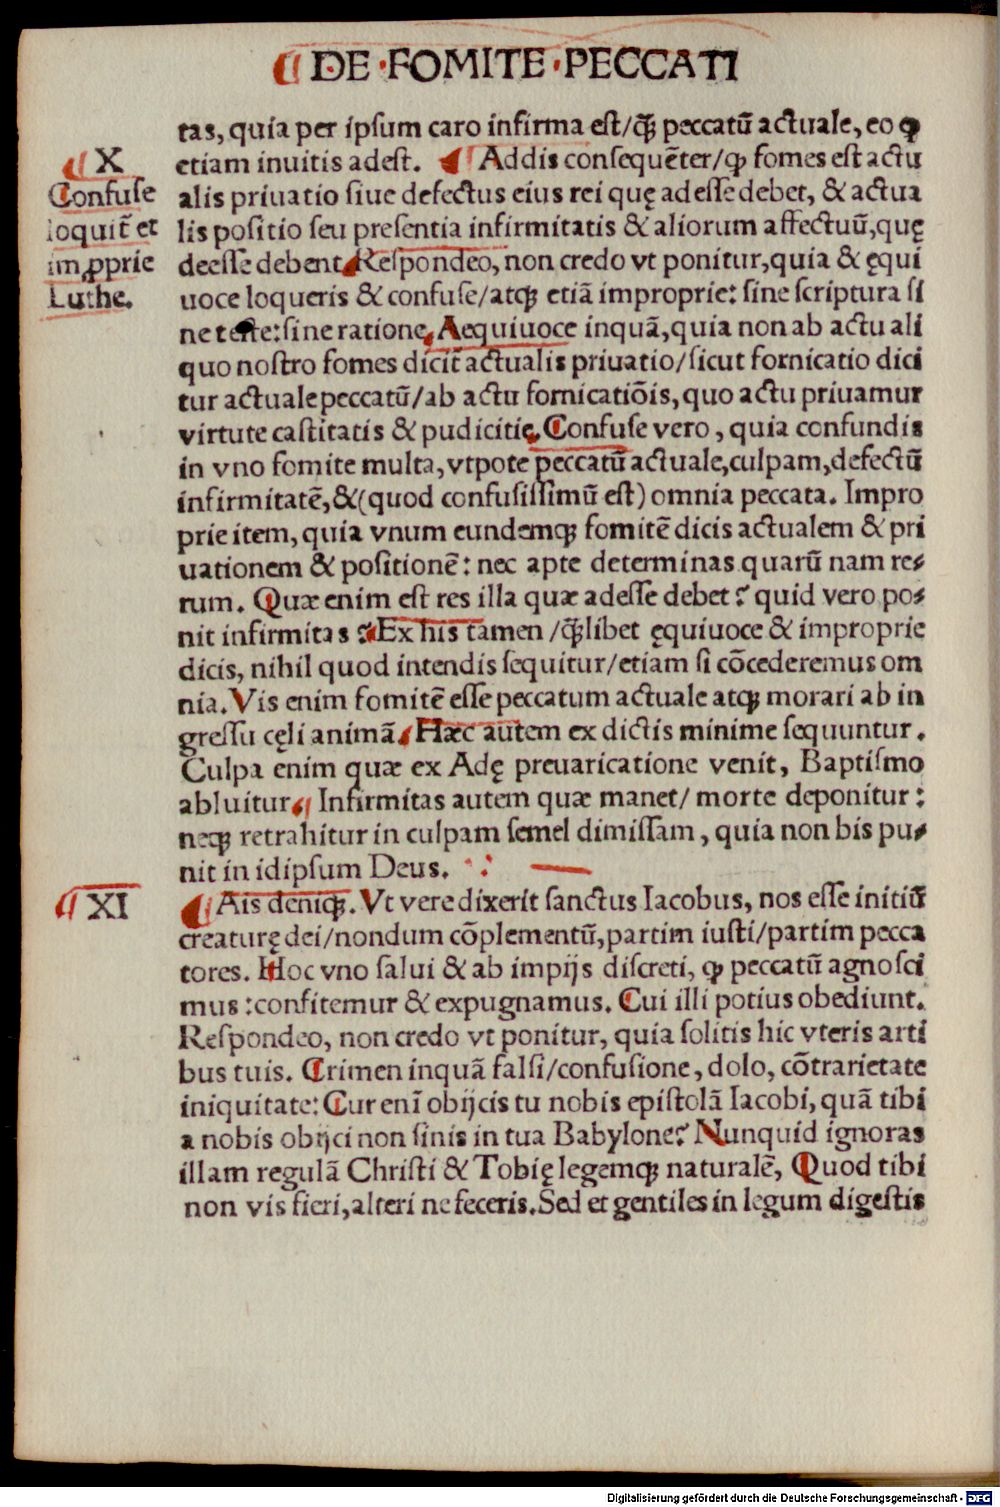 DE FOMITE PECCATI
tas, quia per ipsum caro infirma est/ꝙ̃ peccatū actuale, eo ꝙ
X
etiam inuitis adest. Addis consequēter/ꝙ fomes est actu
Confuse
alis priuatio siue defectus eius rei quę adesse debet, & actua
loquit̃ et
lis positio seu presentia infirmitatis & aliorum affectuū, quę
imꝓprie
deesse debent. Respondeo, non credo vt ponitur, quia & ęqui
Luthe.
uoce loqueris & confuse/atqȝ etiā improprie: sine scriptura si
ne teste: sine ratione. Aequiuoce inquā, quia non ab actu ali
quo nostro fomes dicit̃ actualis priuatio/sicut fornicatio dici
tur actuale peccatū/ab actu fornicatiōis, quo actu priuamur
virtute castitatis & pudicitię. Confuse vero, quia confundis
in vno fomite multa, vtpote peccatū actuale, culpam, defectū
infirmitatē, & (quod confusissimū est) omnia peccata. Impro
prie item, quia vnum eundemqȝ fomitē dicis actualem & pri
uationem & positionē: nec apte determinas quarū nam re-
rum. Quæ enim est res illa quæ adesse debet? quid vero po-
nit infirmitas? Ex his tamen/ꝙ̃libet ęquiuoce & improprie
dicis, nihil quod intendis sequitur/etiam si cōcederemus om
nia. Vis enim fomitē esse peccatum actuale atqȝ morari ab in
gressu cęli animā. Hæc autem ex dictis minime sequuntur.
Culpa enim quæ ex Adę preuaricatione venit, Baptismo
abluitur. Infirmitas autem quæ manet/ morte deponitur:
neqȝ retrahitur in culpam semel dimissam, quia non bis pu-
nit in idipsum Deus.
XI
Ais deniqȝ. Vt vere dixerit sanctus Iacobus, nos esse initiū
creaturę dei/nondum cōplementū, partim iusti/partim pecca
tores. Hoc vno salui & ab impijs discreti, ꝙ peccatū agnosci
mus: confitemur & expugnamus. Cui illi potius obediunt.
Respondeo, non credo vt ponitur, quia solitis hic vteris arti
bus tuis. Crimen inquā falsi/confusione, dolo, cōtrarietate
iniquitate: Cur eni obijcis tu nobis epistolā Iacobi, quā tibi
a nobis obijci non sinis in tua Babylone? Nunquid ignoras
illam regulā Christi & Tobię legemqȝ naturalē, Quod tibi
non vis fieri, alteri ne feceris. Sed et gentiles in legum digestis
Digitalisierung gefördert durch die Deutsche Forschungsgemeinschaft - DFG